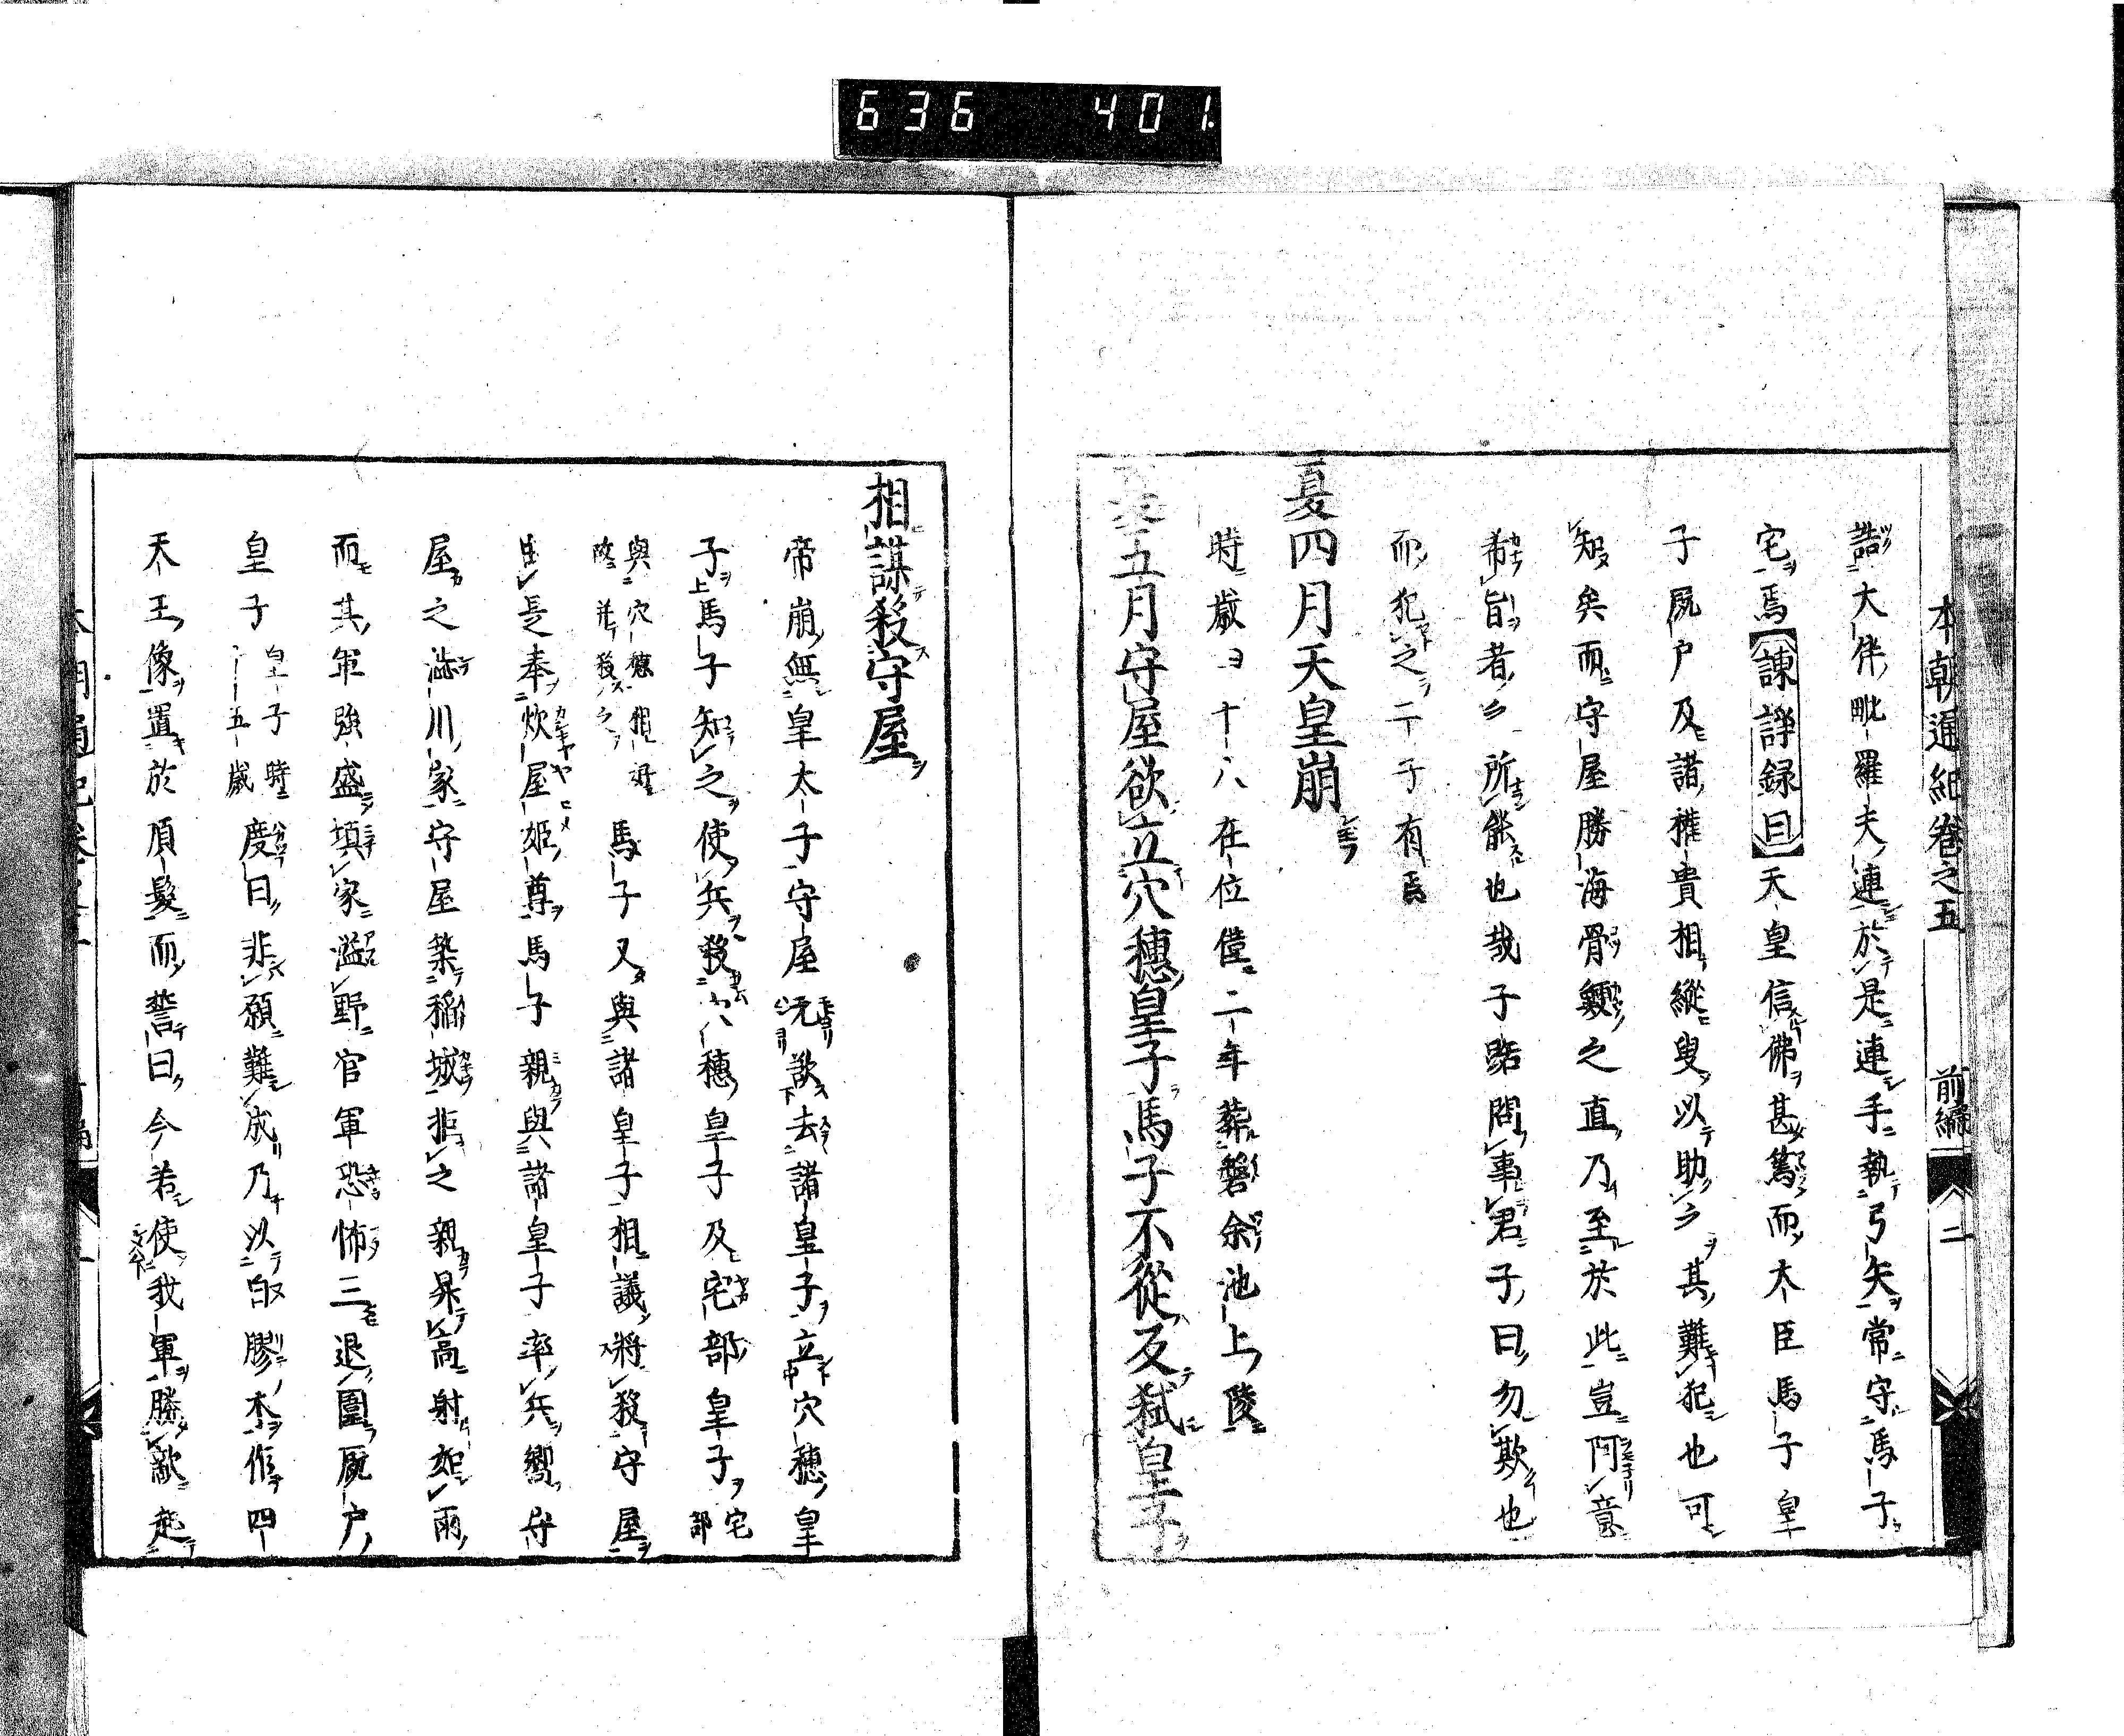 636 401
本朝通紀卷之五 前編 二
詣大伴毗羅夫連於是連手執弓矢常守馬子
宅焉諫諍録曰天皇信佛甚篤而大臣馬子皇
子厩戸及諸權貴相縱臾以助之其難犯也可
知矣而守屋勝海骨鯁之直乃至於此豈阿意
希旨者之所能也哉子路問事君子曰勿欺也
而犯之二子有焉
夏四月天皇崩
時歳四十八在位僅二年葬磐余池上陵
五月守屋欲立穴穗皇子馬子不從反弑皇子
相謀殺守屋
帝崩無皇太子守屋元欲去諸皇子立穴穗皇
子馬子知之使兵殺穴穗皇子及宅部皇子宅部
與穴穗相近故并殺之馬子又與諸皇子相議將殺守屋
於是奉炊屋姫尊馬子親與諸皇子率兵嚮守
屋之澁川家守屋築稲城拒之親昇高射如雨
而其軍強盛填家溢野官軍恐怖三退圍厩戸
皇子皇子時十五歳度曰非願難成乃以白膠木作四
天王像置於頂髮而誓曰今若使我軍勝敵起